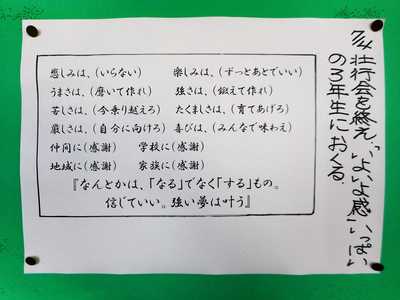 7/4 壮行会を終え、"いよいよ感"いっぱい
の3年生におくる。
悲しみは、(いらない) 楽しみは、(ずっとあとでいい)
うまさは、(磨いて作れ) 強さは、(鍛えて作れ)
苦しさは、(今乗り越えろ) たくましさは、(育てあげろ)
厳しさは、(自分に向けろ) 喜びは、(みんなで味わえ)
仲間に(感謝) 学校に(感謝)
地域に(感謝) 家族に(感謝)
『なんとかは、「なる」でなく「する」もの。
信じていい。強い夢は叶う』